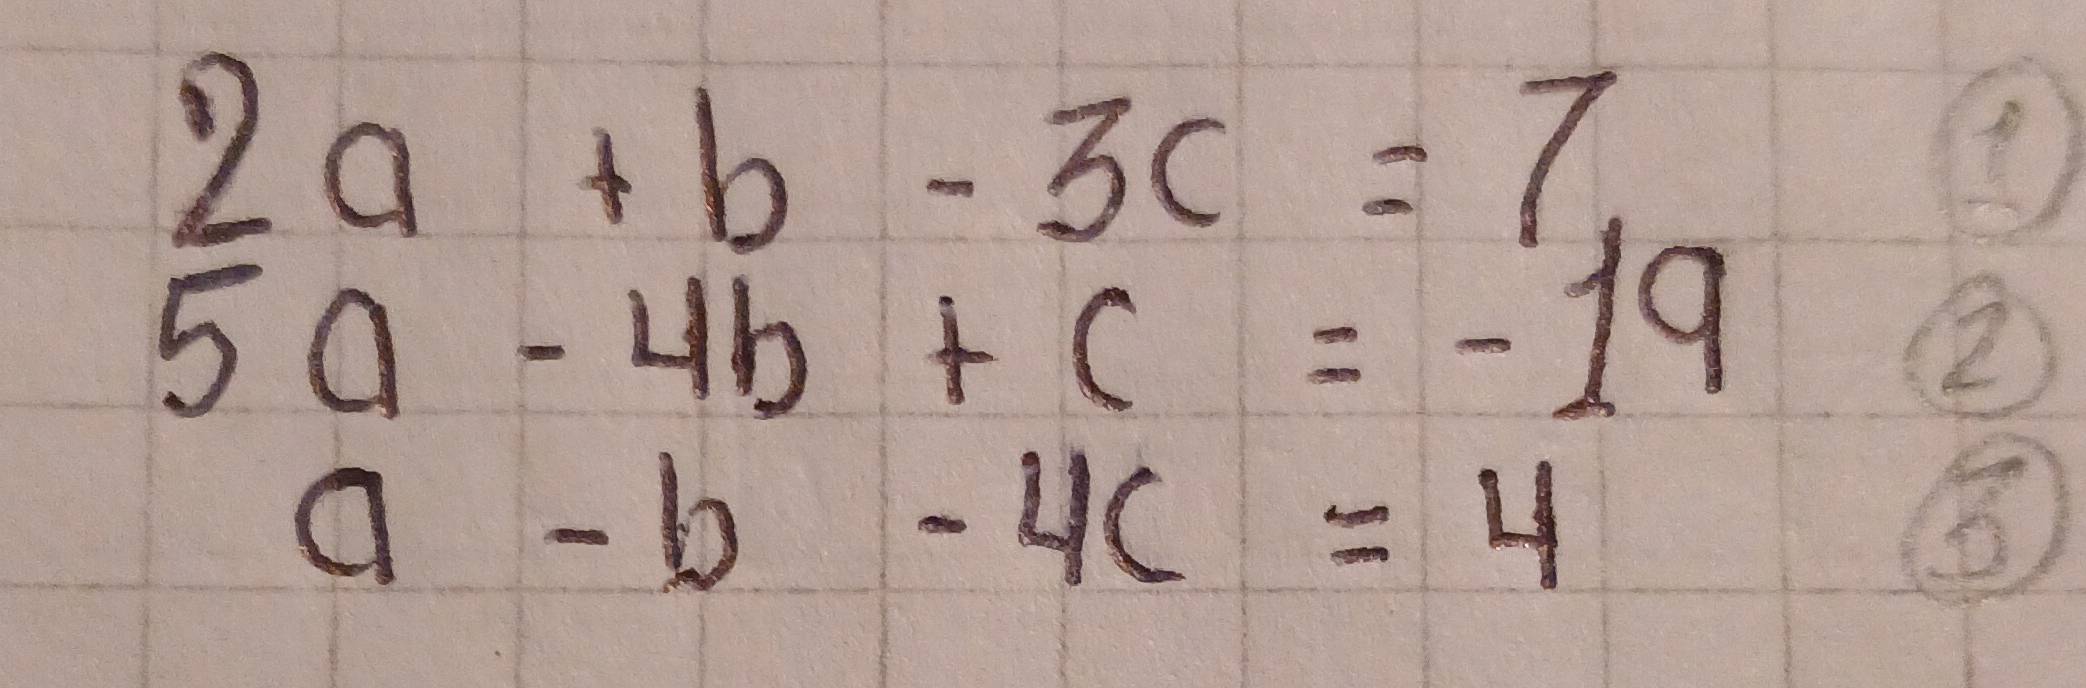 2a + b - 3c = 7 ①
5a - 4b + c = -19 ②
a - b - 4c = 4 ③